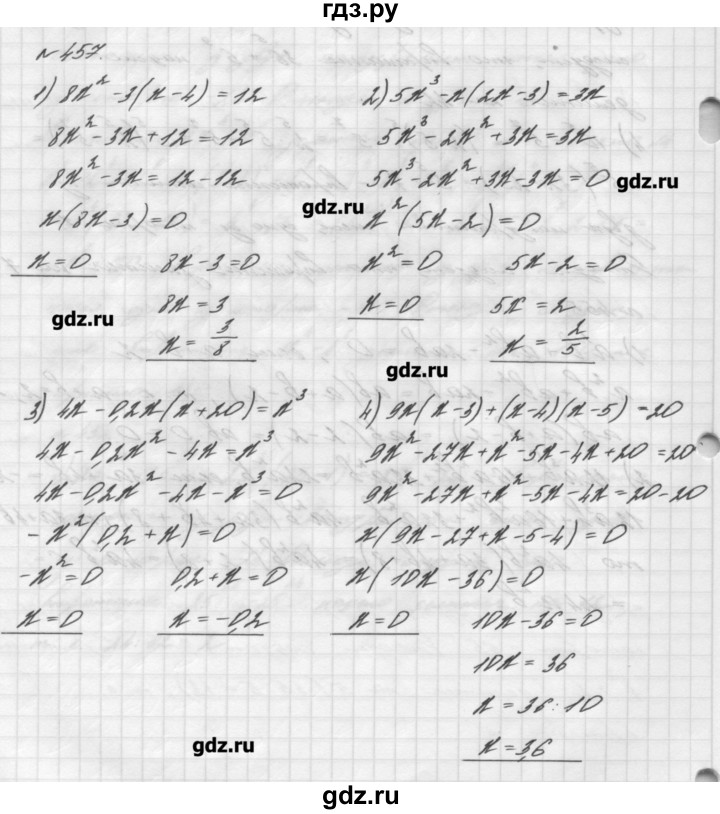 гдз.ру
№ 457.
1) 8x² - 3(x - 4) = 12
8x² - 3x + 12 = 12
8x² - 3x = 12 - 12
x(8x - 3) = 0
x = 0 8x - 3 = 0
8x = 3
x = 3/8
2) 5x³ - x(2x - 3) = 3x
5x³ - 2x² + 3x = 3x
5x³ - 2x² + 3x - 3x = 0
x²(5x - 2) = 0
x² = 0 5x - 2 = 0
x = 0 5x = 2
x = 2/5
3) 4x - 0,2x(x + 20) = x³
4x - 0,2x² - 4x = x³
4x - 0,2x² - 4x - x³ = 0
-x²(0,2 + x) = 0
-x² = 0 0,2 + x = 0
x = 0 x = -0,2
4) 9x(x - 3) + (x - 4)(x - 5) = 20
9x² - 27x + x² - 5x - 4x + 20 = 20
9x² - 27x + x² - 5x - 4x = 20 - 20
x(9x - 27 + x - 5 - 4) = 0
x(10x - 36) = 0
x = 0 10x - 36 = 0
10x = 36
x = 36 : 10
x = 3,6
gdz.ru
gdz.ru
gdz.ru
gdz.ru
gdz.ru
gdz.ru